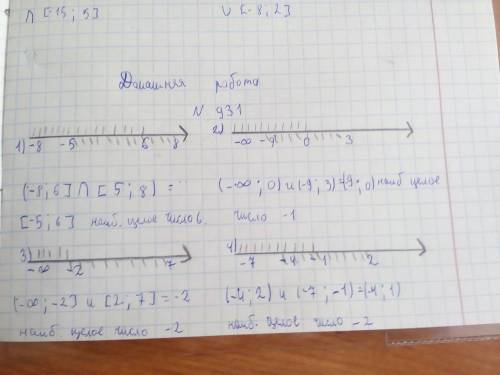 ∩ [-15; 5]
∪ [-8; 2]
Домашняя работа
N 931
1) -8 -5 6 8
2) -∞ -9 0 3
(-8; 6] ∩ [5; 8) =
[-5; 6] наиб. целое число 6.
(-∞; 0) и (-9; 3) (-9; 0) наиб целое
число -1
3) -∞ -2 7
4) -7 -4 -1 2
(-∞; -2] и [2; 7] = -2
наиб целое число -2
(-4; 2) и (-7; -1) = (-4; 1)
наиб. целое число -2